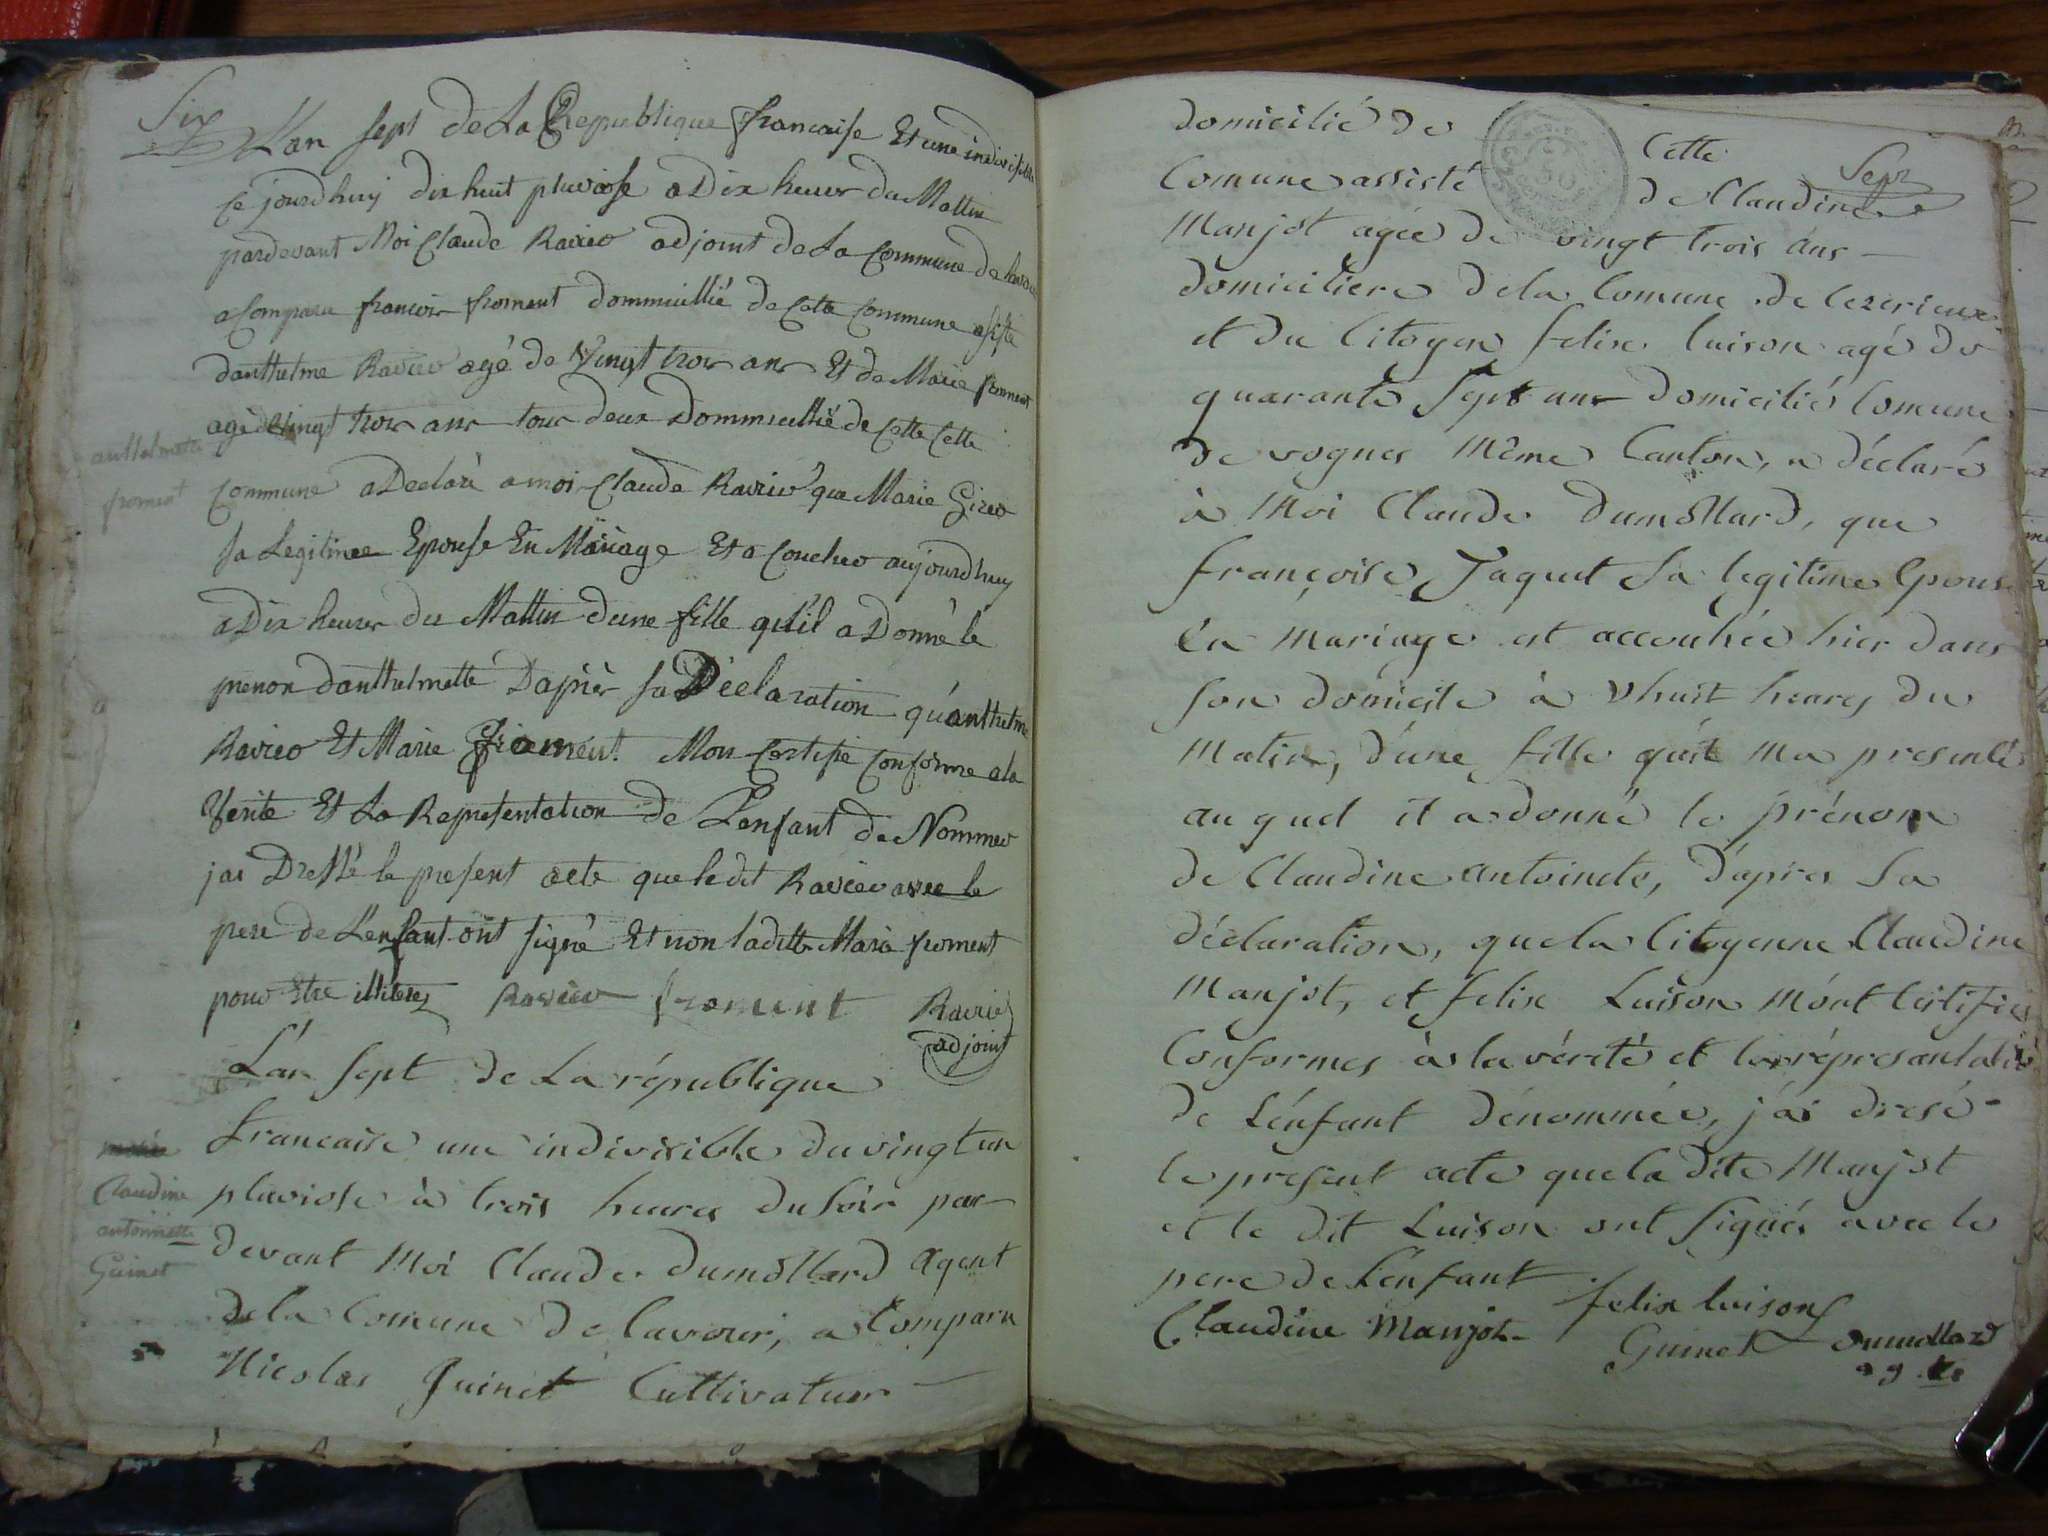 Six
L'an sept de La Republique francaise Et une indivisible
Ce jourdhuy dix huit pluviose a Dix heures du Mattin
pardevant Moi Claude Ravier adjoint de La Commune de Lavour
a Comparu francois froment dommicillié de Cette Commune asisté
danthelme Ravier agé de Vingt trois ans Et de Marie froment
agé de vingt trois ans tous deux Dommicillié de Cette Cette
anthelmette
froment
Commune a Declaré a moi Claude Ravier que Marie
sa Legitime Epouse En Mariage Et a Couchee aujourdhuy
a Dix heures du Mattin dune fille qu'il a Donné le
prenon danthelmette Daprès sa Déclaration qu'anthelme
Ravier Et Marie froment Mon Certifié Conforme a la
Verite Et La Representation de L'enfant de Nommer
jai Dressé le present acte que ledit Ravier avec le
pere de L'enfant ont signé Et non ladette Marie froment
pour Etre Ravier froment Ravier
adjoint
L'an sept de La république
francaise une indivisible du vingt un
Claudine
antoinette
Guinet
pluviose à trois heures du soir par
devant Moi Claude Dumollard Agent
de la Comune de lavour, a Comparu
Nicolas Guinet Cultivateur
Sept
domicilié de Cette
Comune assisté de Claudine
Manjot agée de vingt trois ans
domiciliere de la Comune de
et du Citoyen felix luison agé de
quarante Sept ans domicilié Comune
de vognes Même Canton, a déclaré
à Moi Claude Dumollard, que
françoise Jaquet sa legitime Epouse
En mariage est accouchée hier dans
son domicile à huit heures du
matin, d'une fille qu'il ma presenté
auquel il a donné le prénom
de Claudine antoinete, d'apres Sa
déclaration, que la Citoyenne Claudine
Manjot, et felix Luison m'ont Certifiés
Conformes à la vérité et la représentatio
de L'enfant dénommée, j'ai dresé
le present acte que la dite Manjot
et le dit Luison ont signés avec le
pere de L'enfant felix luison
Claudine Manjot Guinet Dumollard
ag te